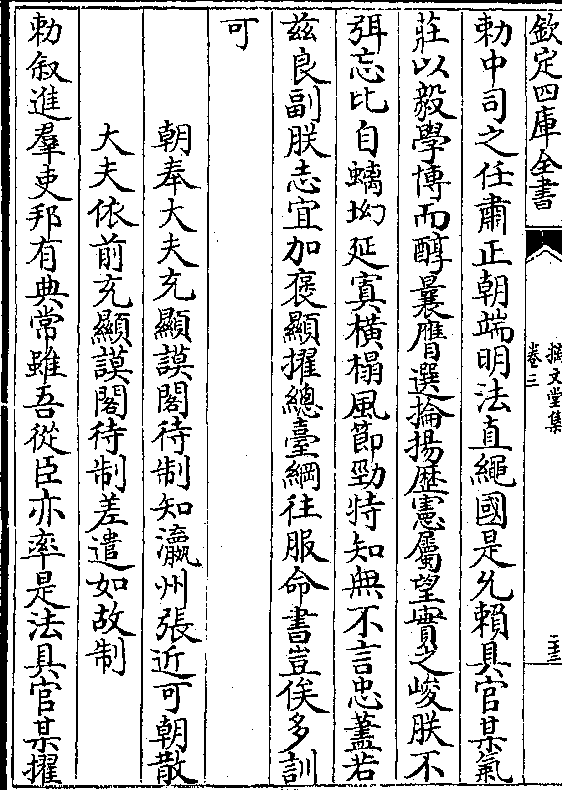 欽定四庫全書
摛文堂集
卷三
二十三
勅中司之任肅正朝端明法直繩國是允賴具官某氣
莊以毅學博而醇曩膺選掄揚歴憲屬望實之峻朕不
弭忘比自螭坳延寘橫榻風節勁特知無不言忠藎若
兹良副朕志宜加褒顯擢總臺綱往服命書豈俟多訓
可
朝奉大夫充顯謨閣待制知瀛州張近可朝散
大夫依前充顯謨閣待制差遣如故制
勅叙進羣吏邦有典常雖吾從臣亦率是法具官某擢